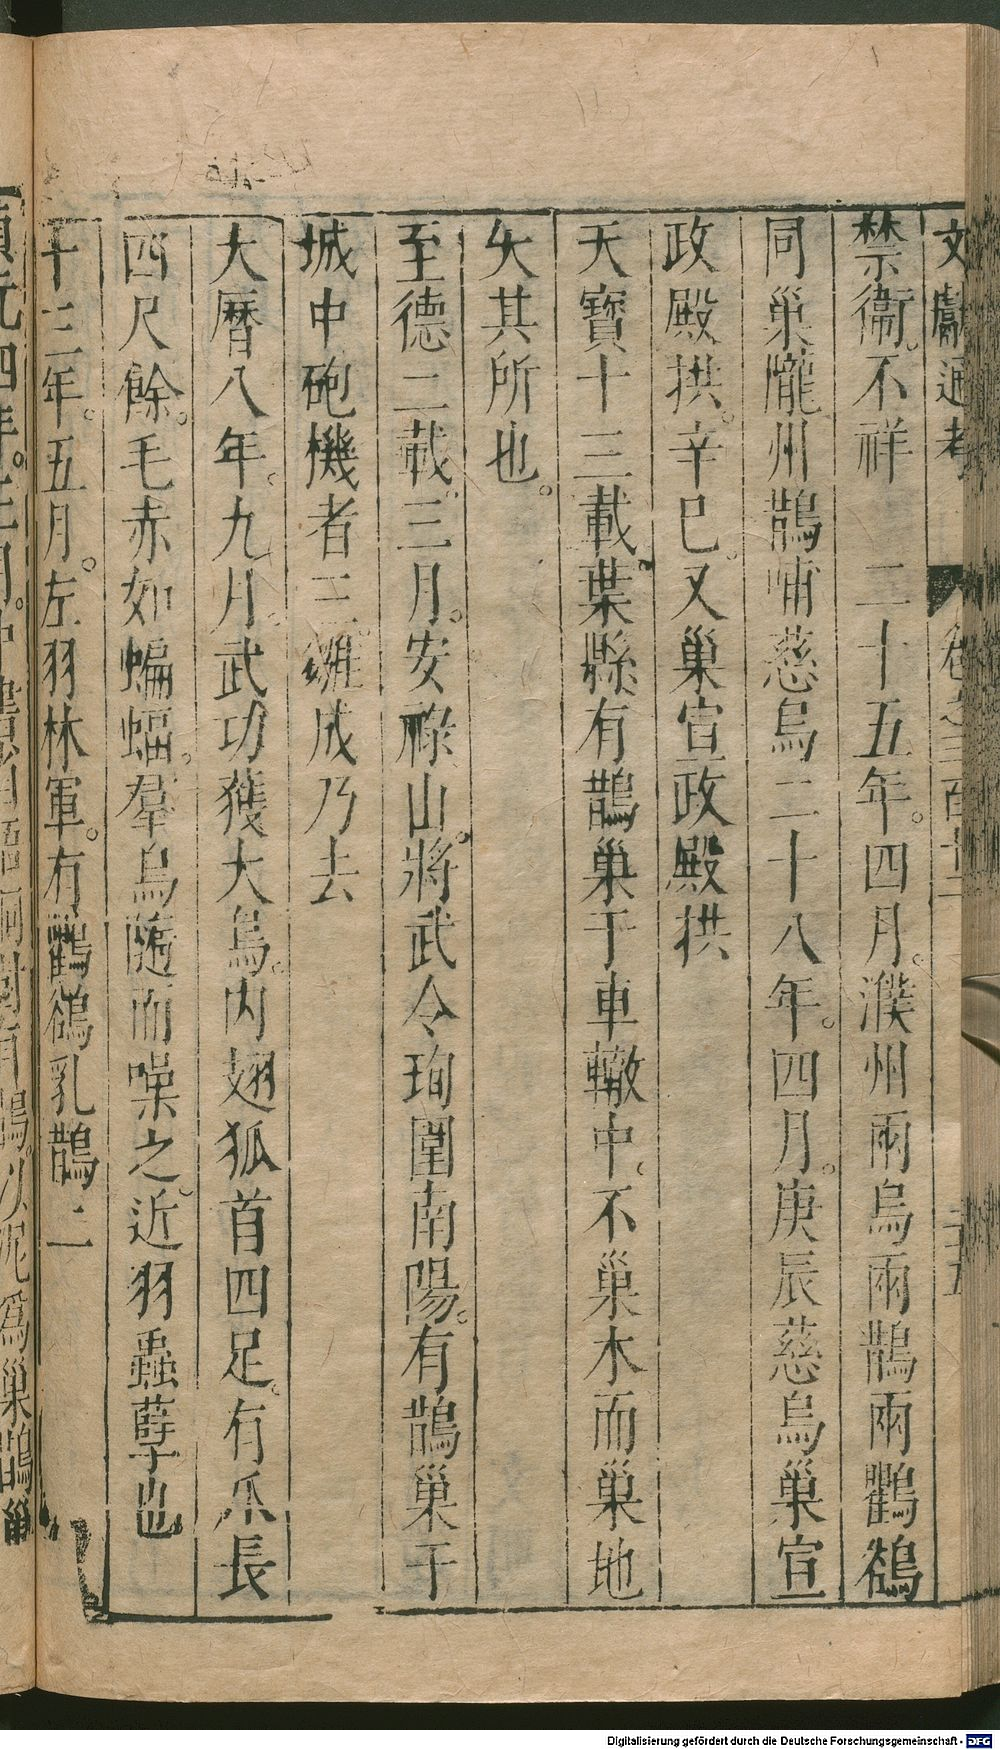 文獻通考 卷之三百十二 二十五
禁衞。不祥 二十五年。四月。濮州兩烏兩鵲兩鸜鵒
同巢隴州鵲哺慈烏二十八年。四月。庚辰慈烏巢宣
政殿拱。辛巳。又巢宣政殿拱
天寶十三載葉縣有鵲巢于車轍中。不巢木而巢地
失其所也。
至德二載。三月。安祿山。將武令珣圍南陽。有鵲巢于
城中砲機者三。雛成乃去
大曆八年。九月。武功獲大鳥。肉翅狐首四足。有爪長
四尺餘。毛赤如蝙蝠。羣鳥隨而噪之。近羽蟲孽也
十三年。五月。左羽林軍。有鸜鵒乳鵲二
貞元四年。三月。中書省梧桐樹有鵲。以泥爲巢鵲巢
Digitalisierung gefördert durch die Deutsche Forschungsgemeinschaft - DFG